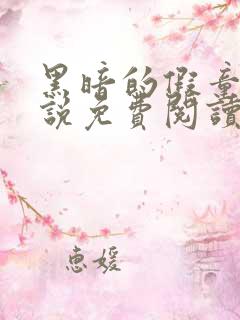 黑暗的假童
說免費閱讀
惠媛